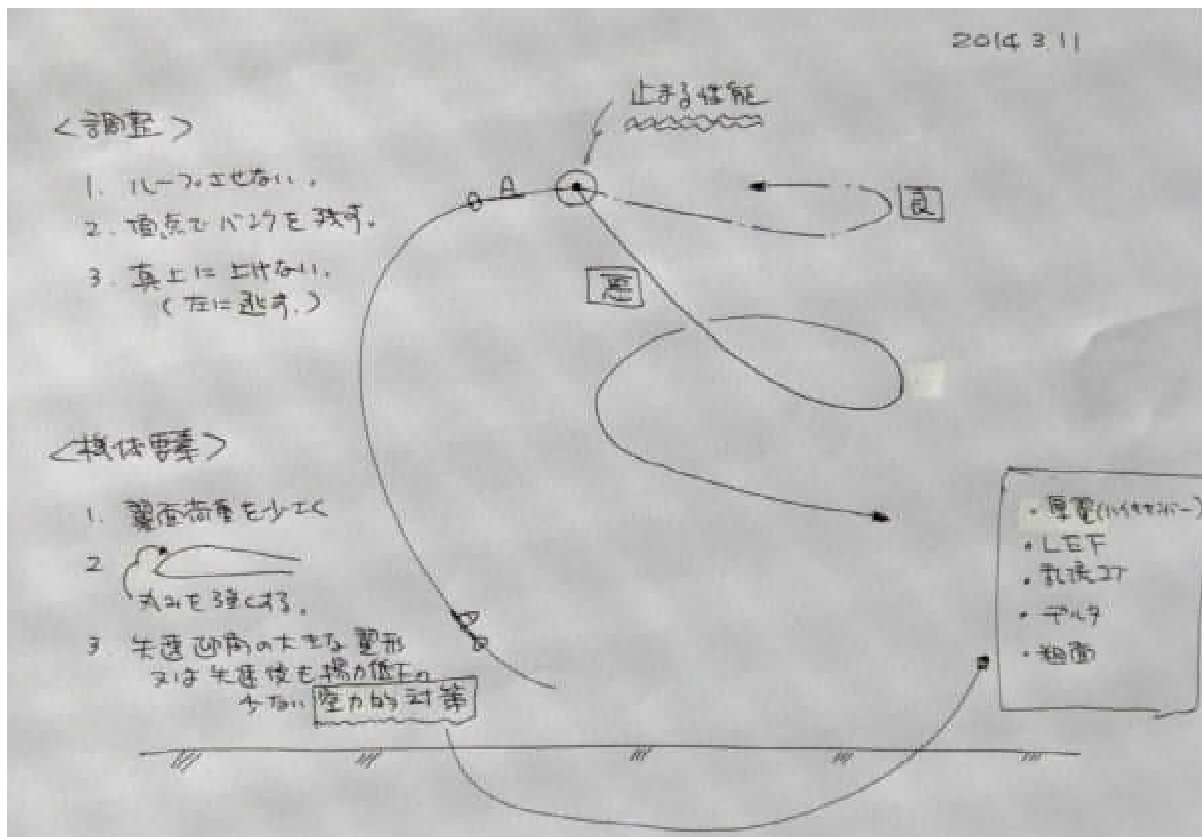 2014 3.11
止まる性能
<調整>
1. ループさせない。
2. 頂点でバンクを残す。
3. 真上に上げない。
(左に逃す。)
良
悪
<機体要素>
1. 翼面荷重を少なく
2
丸みを強くする。
3 失速迎角の大きな翼形
又は失速後も揚力低下の
少ない 空力的対策
・厚翼(ハイキャンバー)
・LEF
・乱流コケ
・デルタ
・粗面